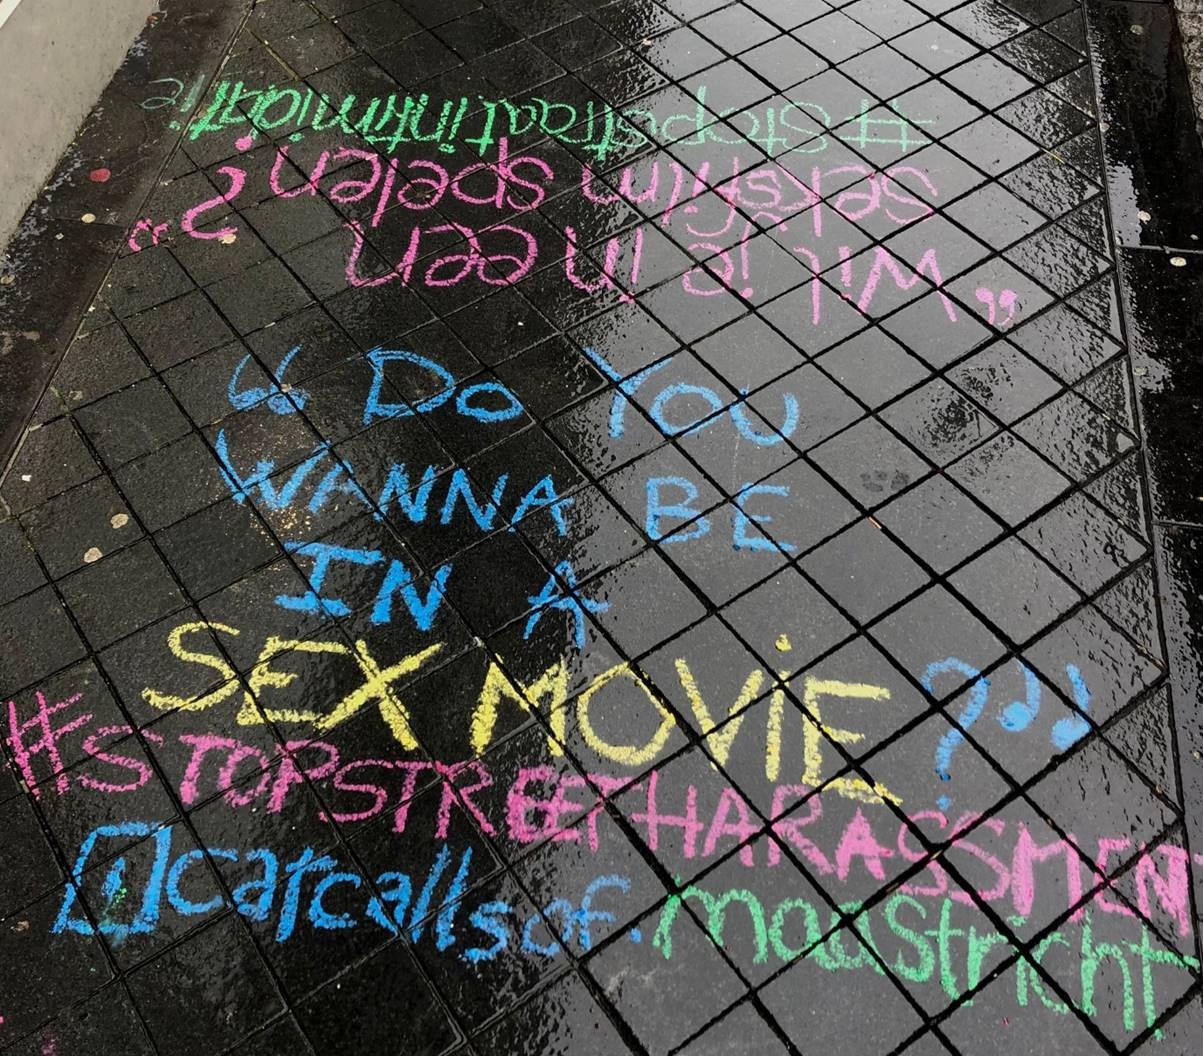 “Wil je in een
seksfilm spelen?”
#Stopstraatintimidatie
“Do You
WANNA BE
IN A
SEX MOViE?”
#STOPSTREETHARASSMENT
catcallsof.maastricht